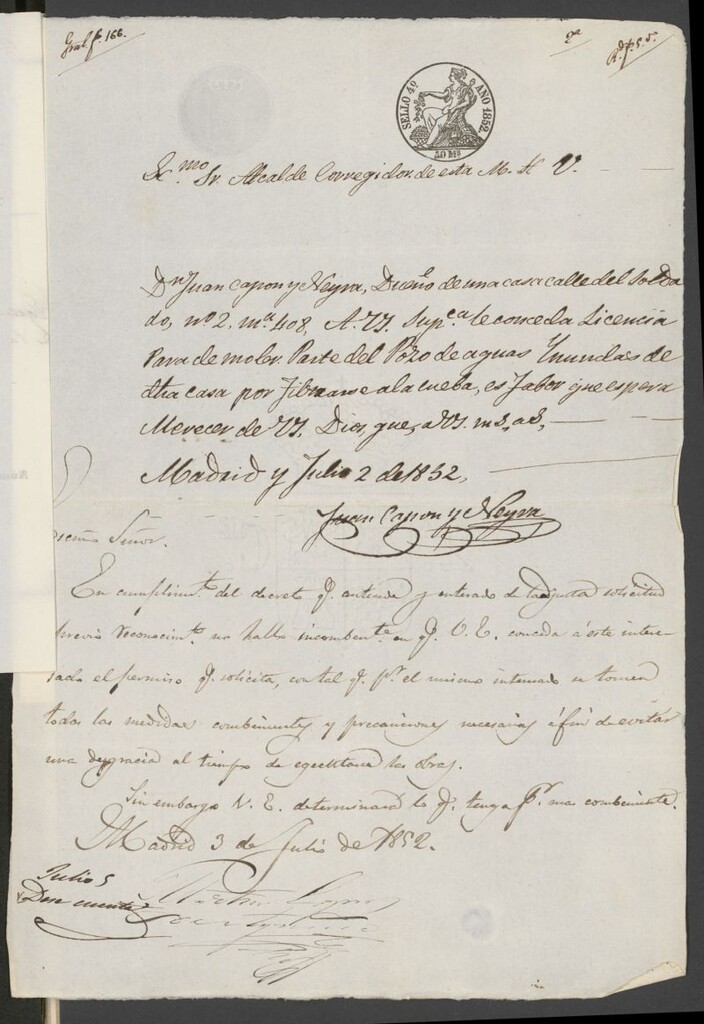 Gral. fº 166.
Rdº f. 5. 5º
SELLO 4º AÑO 1852.
40 Ms
Excmo Sr. Alcalde Corregidor de esta M. H. V.
Dn Juan Capon y Neyra, Dueño de una casa calle del Solda
do, nº 2. mª 408, A. VS. Supca le conceda Licencia
Para demoler Parte del Pozo de aguas Ynmundas de
dha casa por filtrarse a la cueba, es fabor que espera
Merecer de VS. Dios, gue, a VS. ms, as,
Madrid y Julio 2 de 1852,
Juan Capon y Neyra
Señor.
En cumplimto del decreto q. antecede y enterado de la adjunta solicitud
previo reconocimto no hallo incombente en q. V. E. conceda á este intere-
sado el permiso q. solicita, con tal q. pr el mismo interesado se tomen
todas las medidas combenientes y precauciones necesarias á fin de evitar
una desgracia al tiempo de egecutarse las obras.
Sin embargo V. E. determinará lo q. tenga pr mas combeniente.
Madrid 3 de Julio de 1852.
Julio 5
Dese cuenta